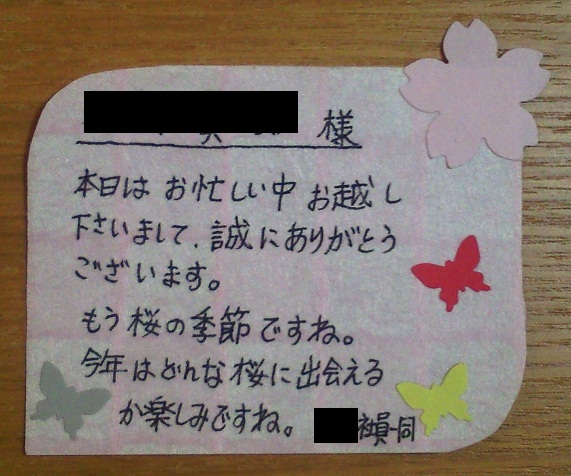 様
本日は お忙しい中 お越し
下さいまして、誠にありがとう
ございます。
もう桜の季節ですね。
今年はどんな桜に出会える
か楽しみですね。 一同